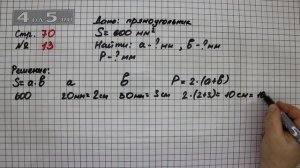 4 5
Стр. 70
№ 13
Дано: прямоугольник
S = 600 мм²
Найти: a - ? мм, b - ? мм
P - ? мм
Решение:
S = a·b a b P = 2·(a+b)
600 20мм = 2см 30мм = 3см 2·(2+3) = 10см =